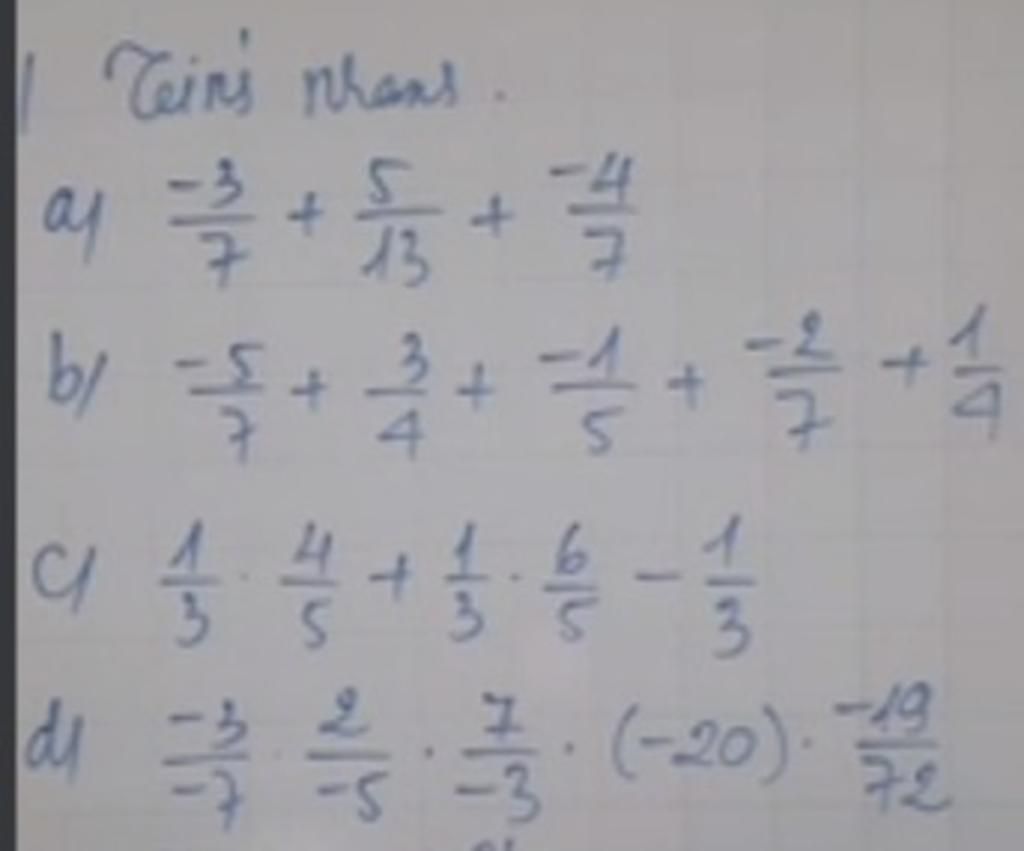 1 Tính nhanh.
a) -3/7 + 5/13 + -4/7
b) -5/7 + 3/4 + -1/5 + -2/7 + 1/4
c) 1/3 . 4/5 + 1/3 . 6/5 - 1/3
d) -3/-7 . 2/-5 . 7/-3 . (-20) . -19/72